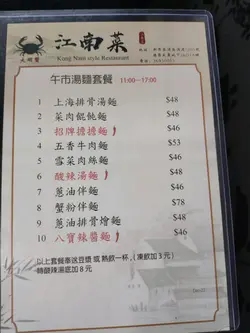 江南菜
Kong Nam style Restaurant
午市湯麵套餐 11:00-17:00
1 上海排骨湯麵 $48
2 菜肉餛飩麵 $48
3 招牌擔擔麵 $46
4 五香牛肉麵 $53
5 雪菜肉絲麵 $46
6 酸辣湯麵 $46
7 蔥油伴麵 $46
8 蟹粉伴麵 $58
9 蔥油排骨燴麵 $53
10 八寶辣醬麵 $46
以上套餐奉送豆漿 或 熱飲一杯，（凍飲加3元）
轉酸辣湯底加8元